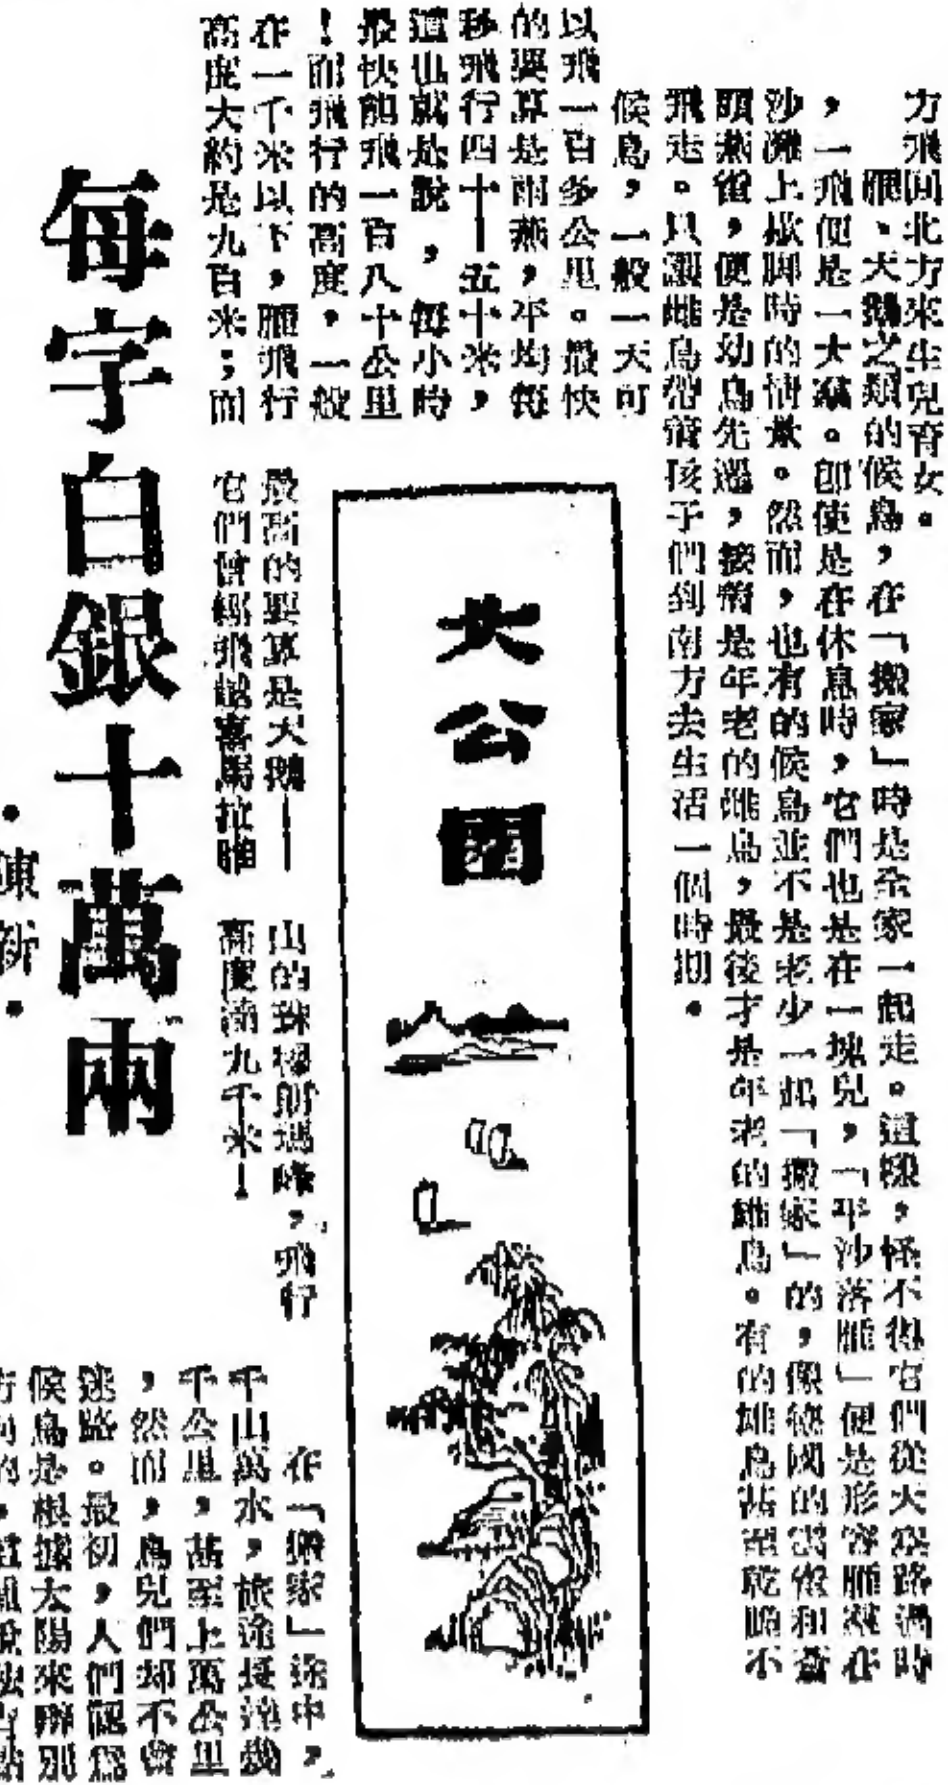 方飛回北方來生兒育女。
雁、天鵝之類的候鳥，在「搬家」時是全家一起走。這樣，怪不得它們從天空路過時
，一飛便是一大羣。即使是在休息時，它們也是在一塊兒，「平沙落雁」便是形容雁羣在
沙灘上歇脚時的情景。然而，也有的候鳥並不是老少一起「搬家」的，像德國的雲雀和蒼
頭燕雀，便是幼鳥先遷，接着是年老的雌鳥，最後才是年老的雄鳥。有的雄鳥甚至乾脆不
飛走。只讓雌鳥帶着孩子們到南方去生活一個時期。
候鳥，一般一天可
以飛一百多公里。最快
的要算是雨燕，平均每
秒飛行四十—五十米，
這也就是說，每小時
最快能飛一百八十公里
！而飛行的高度，一般
在一千米以下，雁飛行
高度大約是九百米；而
最高的要算是天鵝——
它們曾經飛越喜馬拉雅
山的珠穆朗瑪峰，飛行
高度達九千米！
大公園
在「搬家」途中，
千山萬水，旅途長達幾
千公里，甚至上萬公里
，然而，鳥兒們却不會
迷路。最初，人們認爲
候鳥是根據太陽來辨別
方向的，這種說法有點
每字白銀十萬兩
·陳新·